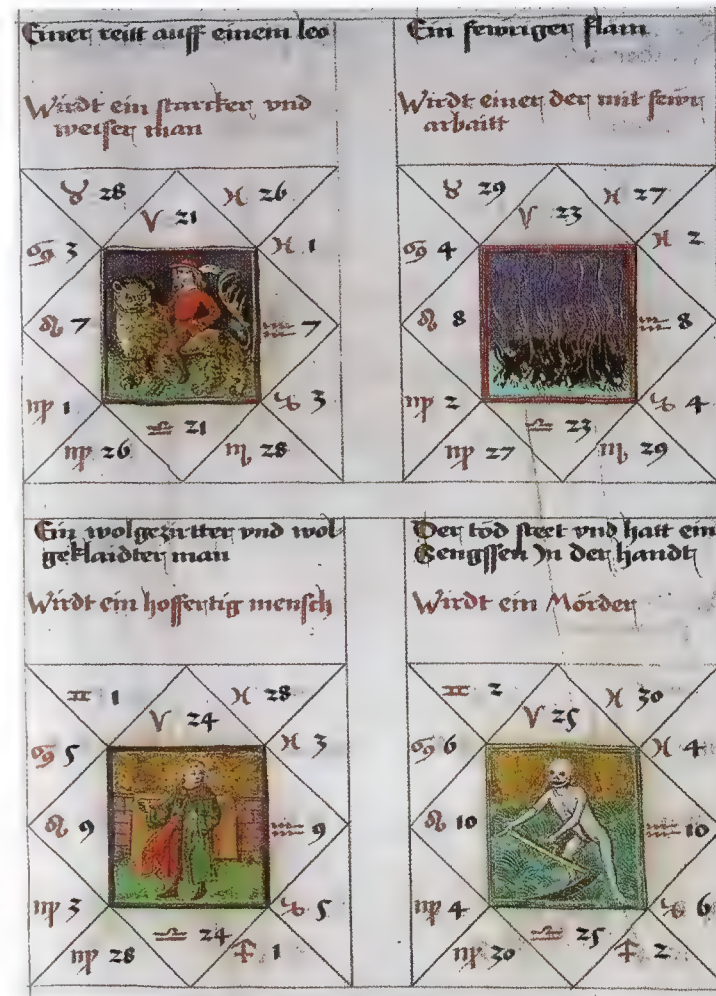 Einer reitt auff einem leo
Wirdt ein starcker vnd
weiser man
♉ 28
♈ 21
♓ 26
♋ 3
♓ 1
♌ 7
♒ 7
♍ 1
♑ 3
♎ 21
♍ 26
♏ 28
Ein fewriger flam
Wirdt einer der mit fewr
arbaitt
♉ 29
♈ 23
♓ 27
♋ 4
♓ 2
♌ 8
♒ 8
♍ 2
♑ 4
♎ 23
♍ 27
♏ 29
Ein wolgezirtter vnd wol
geklaidter man
Wirdt ein hoffertig mensch
♊ 1
♈ 24
♓ 28
♋ 5
♓ 3
♌ 9
♒ 9
♍ 3
♑ 5
♎ 24
♍ 28
♐ 1
Der tod steet vnd hatt ein
Sengssen Jn der handt
Wirdt ein Mörder
♊ 2
♈ 25
♓ 30
♋ 6
♓ 4
♌ 10
♒ 10
♍ 4
♑ 6
♎ 25
♍ 30
♐ 2